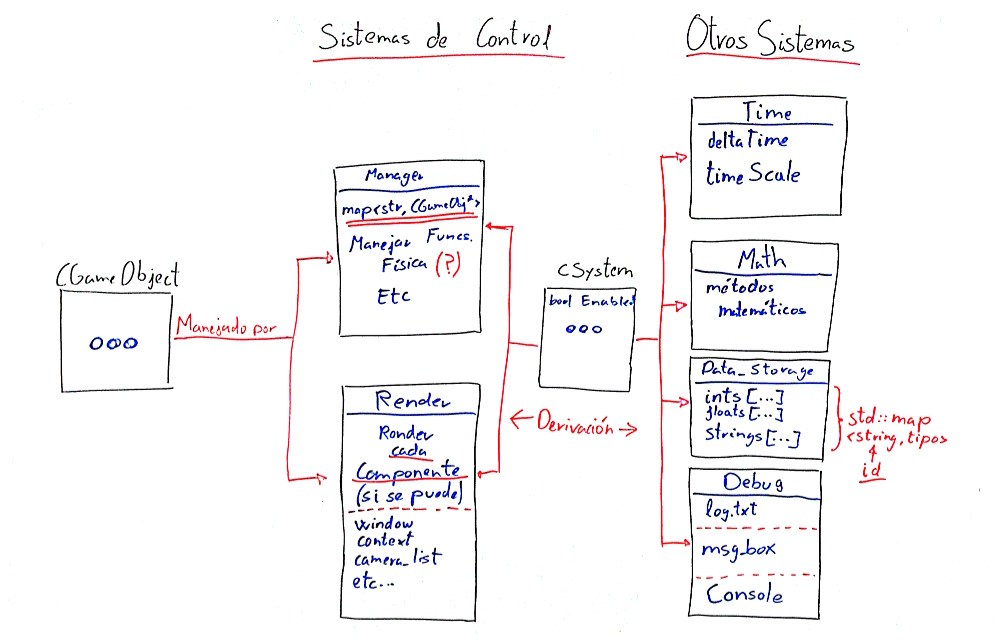 Sistemas de Control
Otros Sistemas
CGameObject
Manejado por
Manager
map<str, CGameObj*>
Manejar Funcs.
Física (?)
Etc
Render
Render
cada
Componente
(si se puede)
window
context
camera_list
etc...
cSystem
bool Enabled
← Derivación →
Time
deltaTime
timeScale
Math
métodos
matemáticos
Data_Storage
ints[...]
floats[...]
strings[...]
std::map
<string, tipo>
id
Debug
log.txt
msg_box
Console